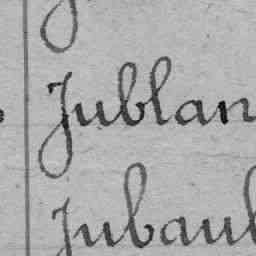 Jublan
Jubaul